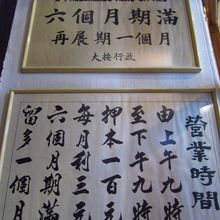 六個月期滿
再展期一個月
大按行啟
營業時間
由上午九時
至下午九時
押本一百元
每月利三元
六個月期滿
留多一個月